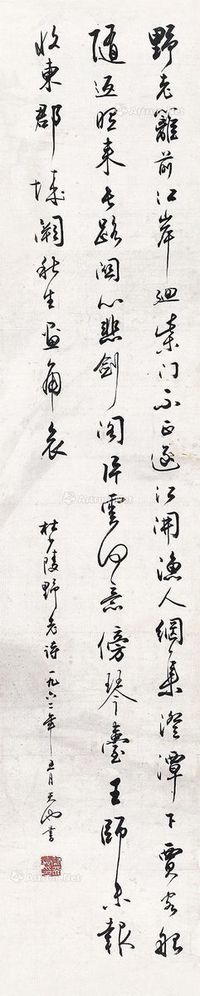 野老離前江岸迴柴门不正逐江開漁人網集澄潭下賈客船
隨返照來长路関心悲劍阁片雲何意傍琴臺王師未報
收東郡城闕秋生画角哀
杜陵野老诗一九六二年五月天池書